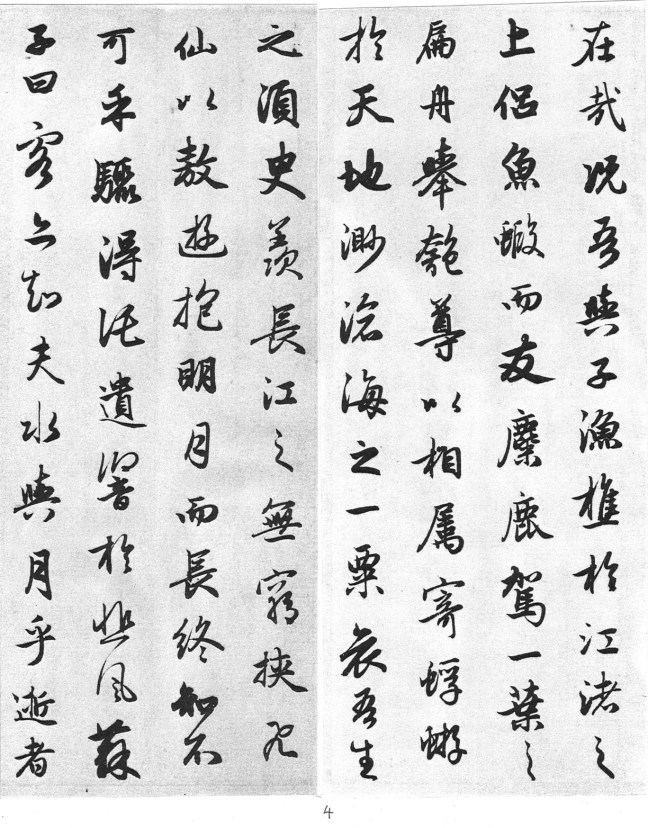 在哉況吾與子漁樵於江渚之
上侶魚蝦而友麋鹿駕一葉之
扁舟舉匏尊以相属寄蜉蝣
於天地渺滄海之一粟哀吾生
之須臾羨長江之無窮挾飛
仙以敖遊抱明月而長終知不
可乎驟得託遺響於悲風蘇
子曰客亦知夫水與月乎逝者
4